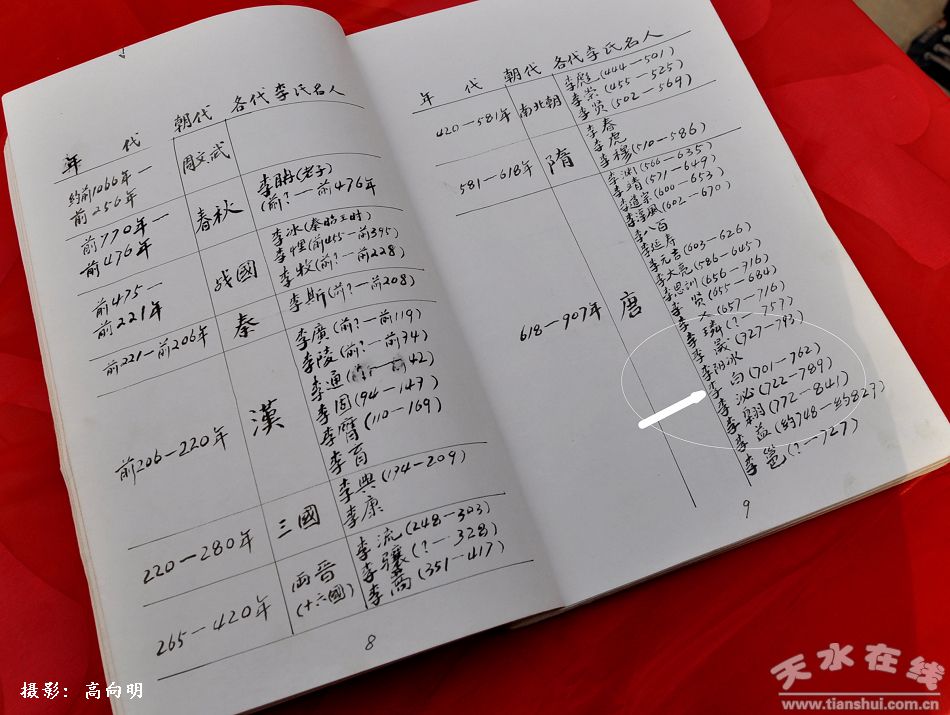 年 代 朝代 各代李氏名人
约前1066年—
前256年
周文武
前770年—
前476年
春秋
李聃(老子)
(前?—前476年
前475—
前221年
战國
李冰(秦昭王时)
李悝(前455—前395
李牧(前?—前228)
前221—前206年
秦
李斯(前?—前208)
前206—220年
漢
李廣(前?—前119)
李陵(前?—前74)
李通 42)
李固(94—147)
李膺(110—169)
李育
220—280年
三國
李典(174—209)
李康
265—420年
两晋
(十六國)
李流(248—303)
李驤(?—328)
李暠(351—417)
8
年 代 朝代 各代李氏名人
420—581年
南北朝
李彪(444—501)
李崇(455—525)
李贤(502—569)
581—618年
隋
李春
李虎
李穆(510—586)
618—907年
唐
李渊(566—635)
李靖(571—649)
李道宗(600—653)
李淳風(602—670)
李八百
李延寿
李元吉(603—626)
李大亮(586—645)
李思訓(656—716)
李贤(655—684)
李乂(657—716)
李璘(?—757)
李晟(727—793)
李阳冰
李白(701—762)
李泌(722—789)
李翱(772—841)
李益(约748—约827)
李邕(?—727)
9
摄影：高向明
天水在线
www.tianshui.com.cn